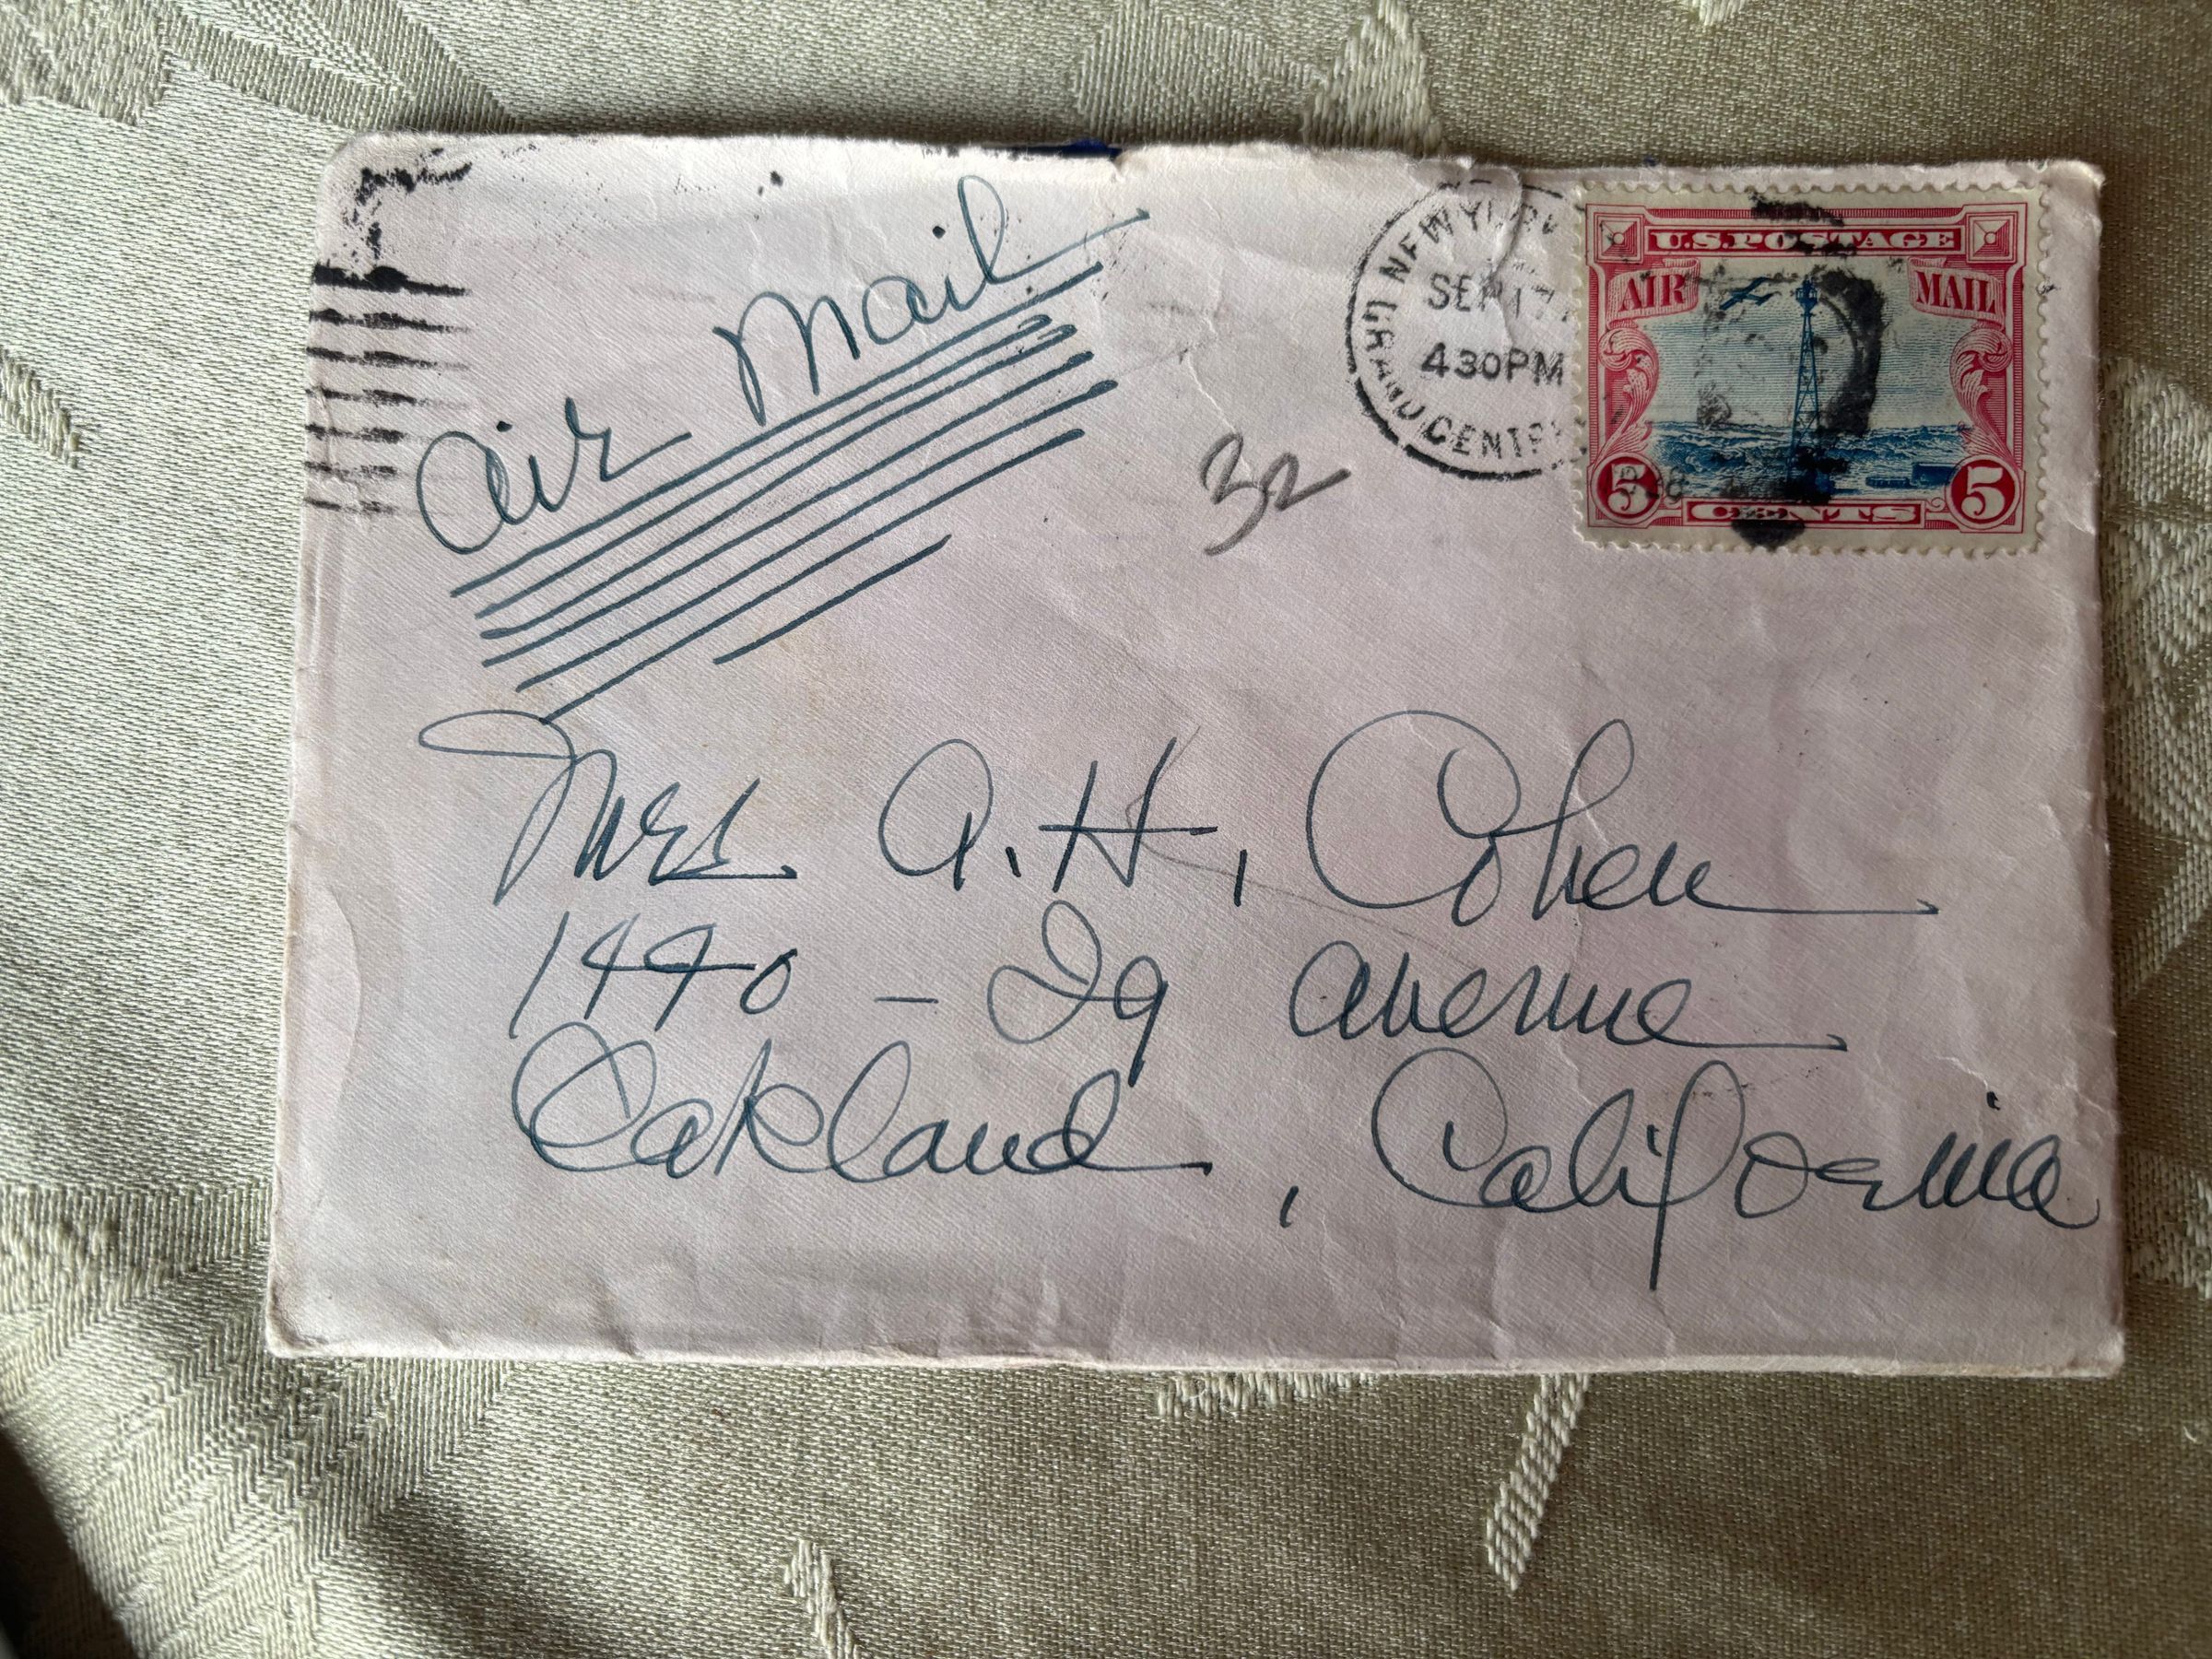 Air Mail
NEW YORK
SEP 17
430PM
GRAND CENTRAL
U.S. POSTAGE
AIR MAIL
5 CENTS 5
32
Mrs. A. H. Cohen
1440 - 29 Avenue
Oakland, California